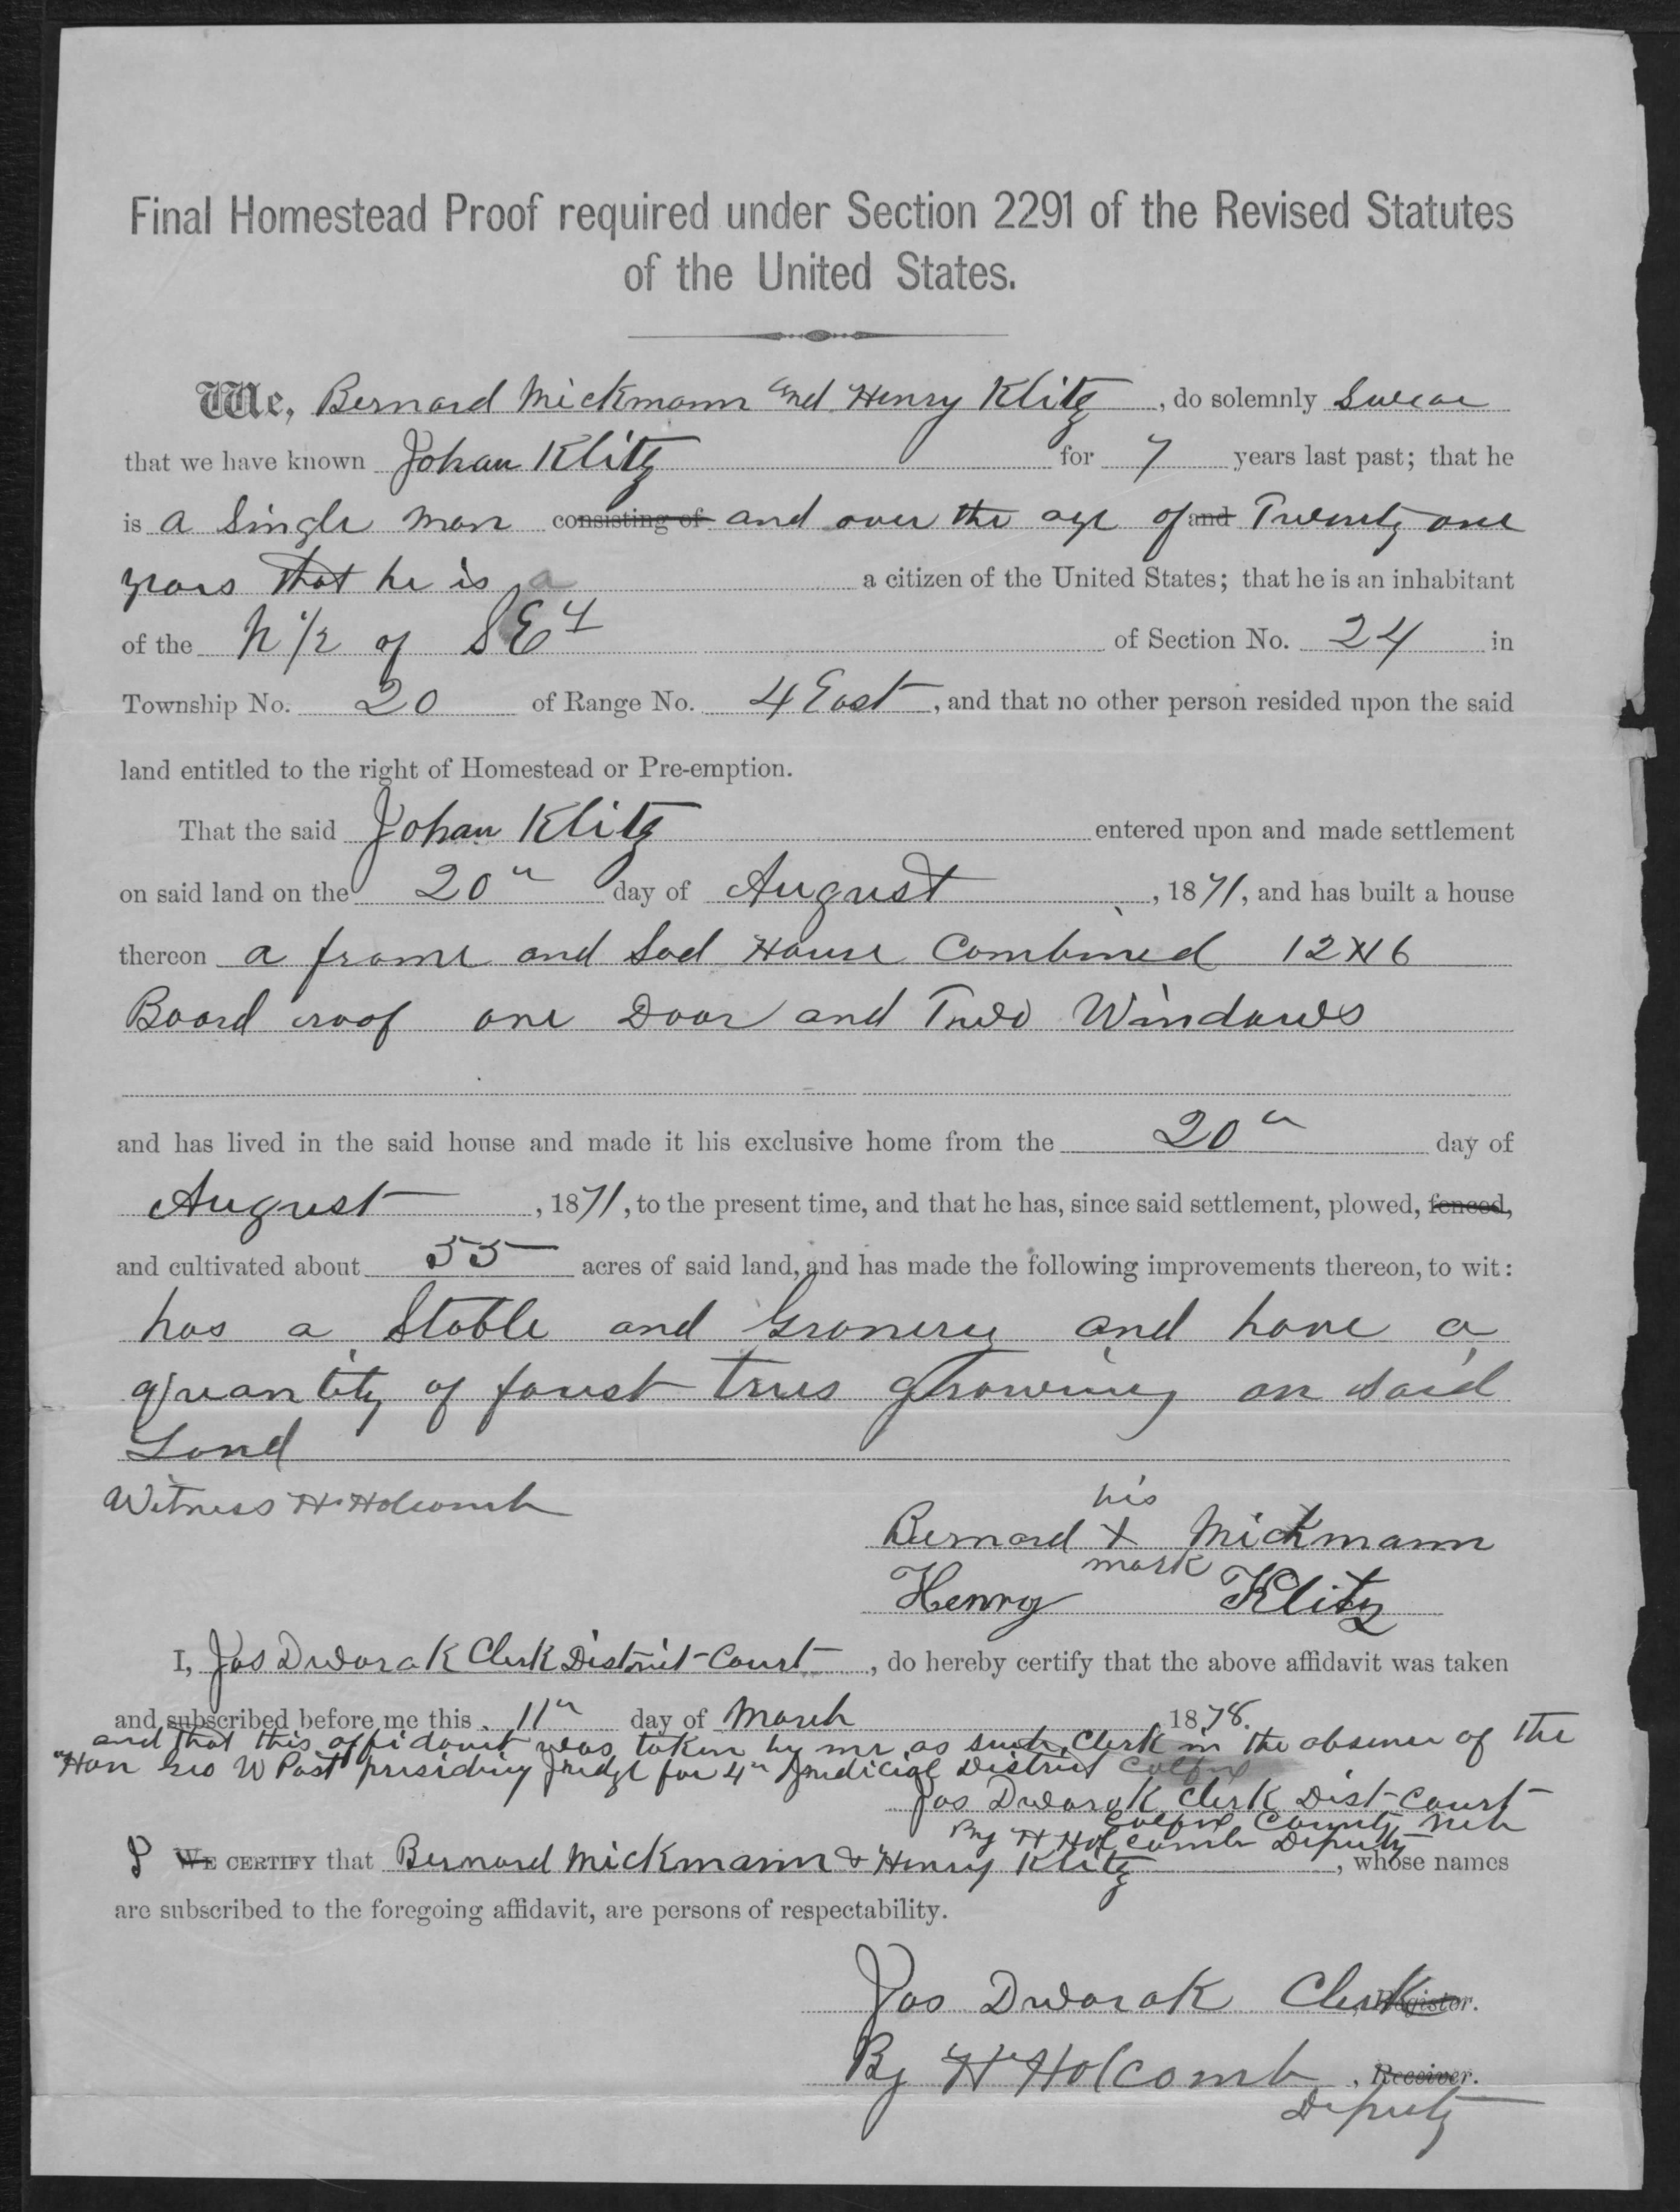 Final Homestead Proof required under Section 2291 of the Revised Statutes
of the United States.
We, Bernard Mickmann and Henry Klitz, do solemnly Swear
that we have known Johan Klitz for 7 years last past; that he
is a Single man consisting of and over the age of and Twenty one
years that he is a a citizen of the United States; that he is an inhabitant
of the N 1/2 of SE 4 of Section No. 24 in
Township No. 20 of Range No. 4 East, and that no other person resided upon the said
land entitled to the right of Homestead or Pre-emption.
That the said Johan Klitz entered upon and made settlement
on said land on the 20" day of August, 1871, and has built a house
thereon a frame and Sod House Combined 12x16
Board roof one Door and Two Windows
and has lived in the said house and made it his exclusive home from the 20" day of
August, 1871, to the present time, and that he has, since said settlement, plowed, fenced,
and cultivated about 55 acres of said land, and has made the following improvements thereon, to wit:
has a Stable and Granery and have a
quantity of forest trees growing on said
Land
Witness H Holcomb
his
Bernard x Mickmann
mark
Henry Klitz
I, Jos Dworak Clerk District Court, do hereby certify that the above affidavit was taken
and subscribed before me this 11" day of March 1878.
and that this affidavit was taken by me as such Clerk in the absence of the
Hon Geo W Post presiding Judge for 4" Judicial District Colfax
Jos Dworak Clerk Dist Court
Colfax County Neb
By H Holcomb Deputy
I We certify that Bernard Mickmann & Henry Klitz, whose names
are subscribed to the foregoing affidavit, are persons of respectability.
Jos Dworak Clerk, Register.
By H Holcomb, Receiver.
Deputy